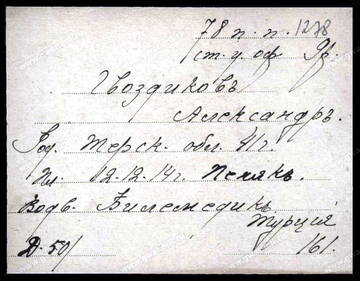 78 п. п. 1278
ст. у. оф. Яр.
Гвоздиковъ
Александръ.
Род. Терск. обл. 41 г.
Пл. 12.12.14 г. Пекякъ.
Водв. Билемедикъ
Турція
Д-50/ 161.